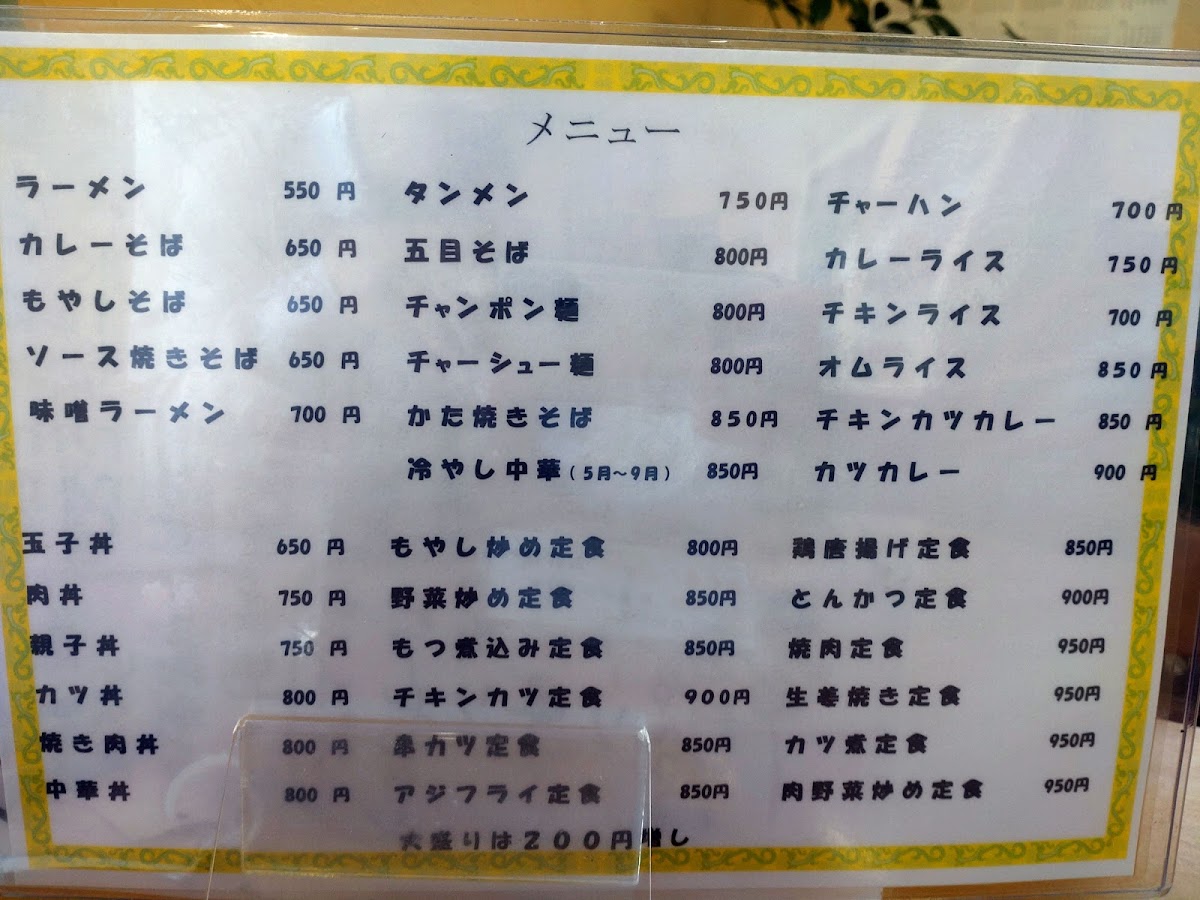 メニュー
ラーメン 550 円 タンメン 750円 チャーハン 700 円
カレーそば 650 円 五目そば 800円 カレーライス 750 円
もやしそば 650 円 チャンポン麺 800円 チキンライス 700 円
ソース焼きそば 650 円 チャーシュー麺 800円 オムライス 850 円
味噌ラーメン 700 円 かた焼きそば 850円 チキンカツカレー 850 円
冷やし中華(5月～9月) 850円 カツカレー 900 円
玉子丼 650 円 もやし炒め定食 800円 鶏唐揚げ定食 850円
肉丼 750 円 野菜炒め定食 850円 とんかつ定食 900円
親子丼 750 円 もつ煮込み定食 850円 焼肉定食 950円
カツ丼 800 円 チキンカツ定食 900円 生姜焼き定食 950円
焼き肉丼 800 円 串カツ定食 850円 カツ煮定食 950円
中華丼 800 円 アジフライ定食 850円 肉野菜炒め定食 950円
大盛りは200円増し